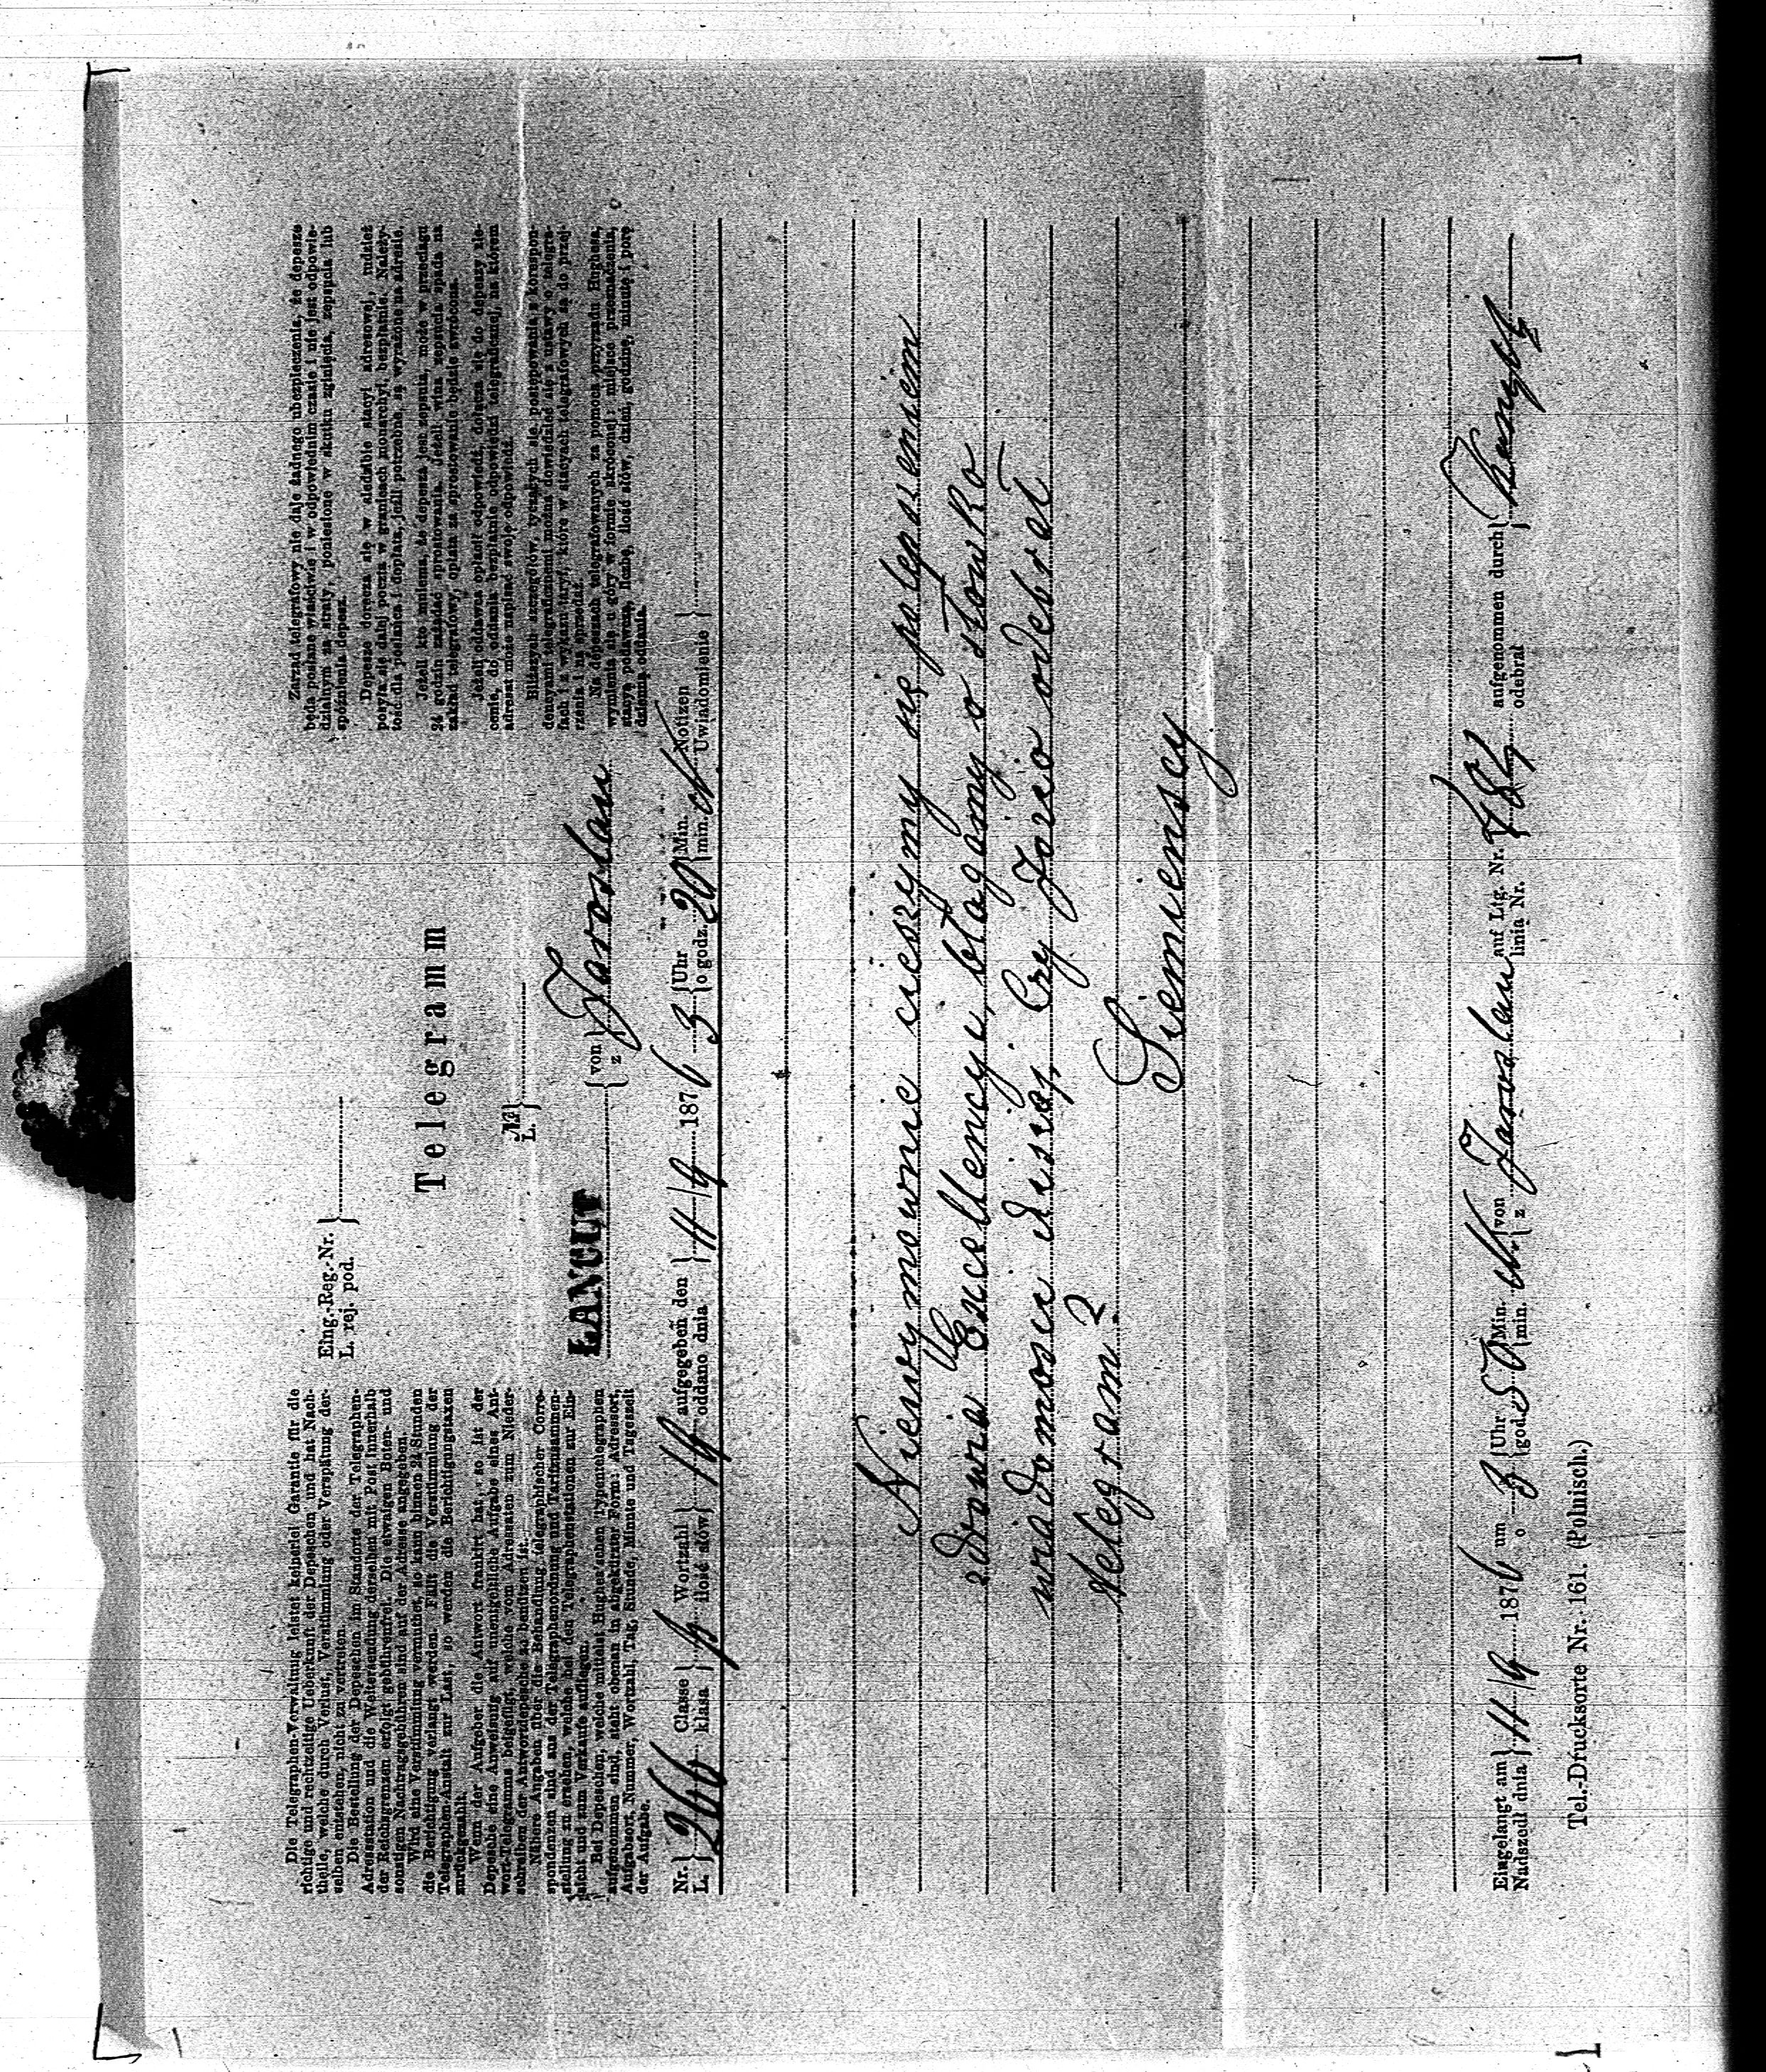 Die Telegraphen-Verwaltung leistet keinerlei Garantie für die
richtige und rechtzeitige Ueberkunft der Depeschen und hat Nach-
theile, welche durch Verlust, Verstümmlung oder Verspätung der-
selben entstehen, nicht zu vertreten.
Die Bestellung der Depeschen im Standorte der Telegraphen-
Adressstation und die Weitersendung derselben mit Post innerhalb
der Reichsgrenzen erfolgt gebührenfrei. Die etwaigen Boten- und
sonstigen Nachtragsgebühren sind auf der Adresse angegeben.
Wird eine Verstümmlung vermuthet, so kann binnen 24 Stunden
die Berichtigung verlangt werden. Fällt die Verstümmlung der
Telegraphen-Anstalt zur Last, so werden die Berichtigungstaxen
zurückgezahlt.
Wenn der Aufgeber die Antwort frankirt hat, so ist der
Depesche eine Anweisung auf unentgeltliche Aufgabe eines Ant-
wort-Telegramms beigefügt, welche vom Adressaten zum Nieder-
schreiben der Antwortdepesche zu benützen ist.
Nähere Angaben über die Behandlung telegraphischer Corre-
spondenzen sind aus der Telegraphenordnung und Tarifzusammen-
stellung zu ersehen, welche bei den Telegraphenstationen zur Ein-
sicht und zum Verkaufe aufliegen.
Bei Depeschen, welche mittelst Hughes'schen Typentelegraphen
aufgenommen sind, steht obenan in abgekürzter Form: Adressort,
Aufgabsort, Nummer, Wortzahl, Tag, Stunde, Minute und Tageszeit
der Aufgabe.
Eing.-Reg.-Nr.
L. rej. pod.
Telegramm
№
L.
ŁANCUT
von
z
Jaroslau
Zarząd telegrafowy nie daje żadnego ubezpieczenia, że depesze
będą posłane właściwie i w odpowiednim czasie i nie jest odpowie-
dzialnym za straty, poniesione w skutku zginięcia, zepsucia lub
spóźnienia depesz.
Depesze doręcza się w siedzibie stacyi adresowej, tudzież
posyła się dalej pocztą w granicach monarchyi, bezpłatnie. Należy-
tość dla posłańca i dopłata, jeśli potrzebne, są wyrażone na adresie.
Jeżeli kto mniema, że depesza jest zepsuta, może w przeciągu
24 godzin zażądać sprostowania. Jeżeli wina zepsucia spada na
zakład telegrafowy, opłata za sprostowanie będzie zwrócona.
Jeżeli oddawca opłacił odpowiedź, dołącza się do depeszy zle-
cenie, do oddania bezpłatnie odpowiedzi telegraficznej, na którem
adresat może napisać swoję odpowiedź.
Bliższych szczegółów, tyczących się postępowania z korespon-
dencyami telegraficznemi można dowiedzieć się z ustawy o telegra-
fach i z wykazu taryf, które w stacyach telegrafowych są do przej-
rzenia i na sprzedaż.
Na depeszach telegrafowanych za pomocą przyrządu Hughesa,
wymienia się u góry w formie skróconej: miejsce przeznaczenia,
stacyę podawczą, liczbę, ilość słów, dzień, godzinę, minutę i porę
dzienną oddania.
Nr. L. 266 Classe klasa Wortzahl ilość słów 19 aufgegeben den oddano dnia 11/9 1876 3 Uhr o godz. 20 Min. min. N. Notizen Uwiadomienie
Niewymownie cieszymy się polepszeniem
zdrowia Excellencyi, błagamy o słówko
wiadomości dzisiaj. Czy Józio odebrał
telegram?
Siemienscy
Eingelangt am Nadszedł dnia 11/9 1876 um o 3 Uhr god. 50 Min. min. N. von z Jaroslau auf Ltg. Nr. linia Nr. aufgenommen durch odebrał
Tel.-Drucksorte Nr. 161. (Polnisch.)